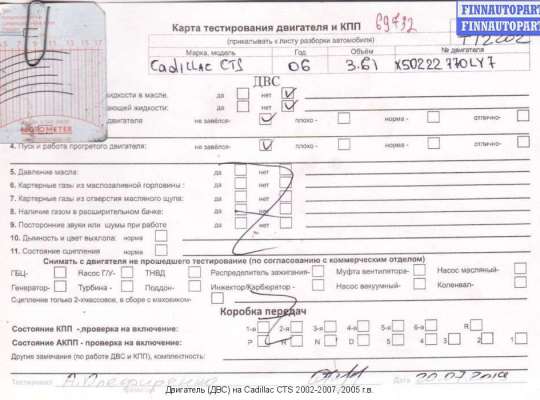 FINNAUTOPART
FINNAUTOPART
Карта тестирования двигателя и КПП 69732
(прикалывать к листу разборки автомобиля)
Марка, модель Год Объём № двигателя
Cadillac CTS 06 3.6i X50222770LY7
ДВС
жидкости в масле. да нет
ающей жидкости: да нет
двигателя не завёлся- плохо - норма - отлично-
4. Пуск и работа прогретого двигателя: не завёлся- плохо - норма - отлично-
5. Давление масла: да нет
6. Картерные газы из маслозаливной горловины : да нет
7. Картерные газы из отверстия масляного щупа: да нет
8. Наличие газом в расширительном бачке: да нет
9. Посторонние звуки или шумы при работе да нет
10. Дымность и цвет выхлопа: норма
11. Состояние сцепления норма
Снимать с двигателя не прошедшего тестирование (по согласованию с коммерческим отделом)
ГБЦ- Насос Г/У- ТНВД Распределитель зажигания- Муфта вентилятора- Насос масляный-
Генератор- Турбина - Поддон- Инжектор/Карбюратор - Насос вакуумный- Коленвал-
Сцепление только 2-хмассовое, в сборе с маховиком-
Коробка передач
Состояние КПП -,проверка на включение: 1-я 2-я 3-я 4-я 5-я 6-я R
Состояние АКПП -.проверка на включение: P R N D 5 4 3 2 1
Другие замечания (по работе ДВС и КПП), комплектность:
Тестировал Дата
Двигатель (ДВС) на Cadillac CTS 2002-2007, 2005 г.в.